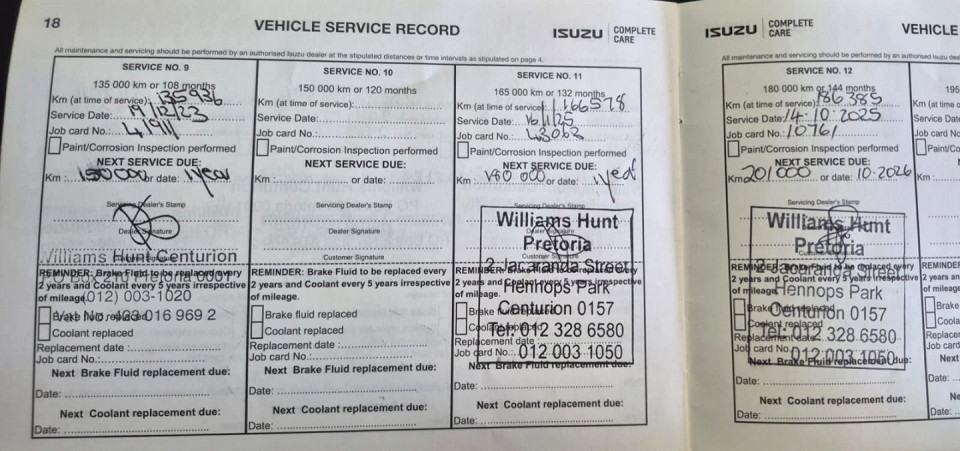 18
VEHICLE SERVICE RECORD
ISUZU COMPLETE CARE
All maintenance and servicing should be performed by an authorised Isuzu dealer at the stipulated distances or time intervals as stipulated on page 4.
SERVICE NO. 9
135 000 km or 108 months
Km (at time of service): 135936
Service Date: 19/12/23
Job card No.: 41911
Paint/Corrosion Inspection performed
NEXT SERVICE DUE:
Km : 150 000 or date: 1 year
Servicing Dealer's Stamp
Dealer Signature
Williams Hunt Centurion
PO Box 210 Pretoria 0001
REMINDER: Brake Fluid to be replaced every
2 years and Coolant every 5 years irrespective
of mileage.
(012) 003-1020
Brake fluid replaced
Vat No. 423 016 969 2
Coolant replaced
Replacement date :
Job card No.:
Next Brake Fluid replacement due:
Date:
Next Coolant replacement due:
Date:
SERVICE NO. 10
150 000 km or 120 months
Km (at time of service):
Service Date:
Job card No.:
Paint/Corrosion Inspection performed
NEXT SERVICE DUE:
Km : or date:
Servicing Dealer's Stamp
Dealer Signature
Customer Signature
REMINDER: Brake Fluid to be replaced every
2 years and Coolant every 5 years irrespective
of mileage.
Brake fluid replaced
Coolant replaced
Replacement date :
Job card No.:
Next Brake Fluid replacement due:
Date:
Next Coolant replacement due:
Date:
SERVICE NO. 11
165 000 km or 132 months
Km (at time of service): 166578
Service Date: 16/1/25
Job card No.: 43063
Paint/Corrosion Inspection performed
NEXT SERVICE DUE:
Km : 180 000 or date: 1 year
Servicing Dealer's Stamp
Williams Hunt
Pretoria
2 Jacaranda Street
Hennops Park
Centurion 0157
Tel: 012 328 6580
012 003 1050
Customer Signature
REMINDER: Brake Fluid to be replaced every
2 years and Coolant every 5 years irrespective
of mileage.
Brake fluid replaced
Coolant replaced
Replacement date :
Job card No.:
Next Brake Fluid replacement due:
Date:
Next Coolant replacement due:
Date:
ISUZU COMPLETE CARE
VEHICLE
All maintenance and servicing should be performed by an authorised Isuzu
SERVICE NO. 12
180 000 km or 144 months
Km (at time of service): 186385
Service Date: 14.10.2025
Job card No.: 10761
Paint/Corrosion Inspection performed
NEXT SERVICE DUE:
Km 201 000 or date: 10.2026
Servicing Dealer's Stamp
Williams Hunt
Pretoria
2 Jacaranda Street
Hennops Park
Centurion 0157
Tel: 012 328 6580
012 003 1050
REMINDER: Brake Fluid to be replaced every
2 years and Coolant every 5 years irrespective
of mileage.
Brake fluid replaced
Coolant replaced
Replacement date :
Job card No.:
Next Brake Fluid replacement due:
Date:
Next Coolant replacement due:
Date:
195
Km
Service
Job card
Paint/Co
Km :
REMINDER
2 years and
of mileage.
Brake
Coola
Job card
Next
Date:
Date: